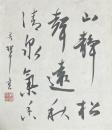 山靜松
聲遠秋
清泉氣香